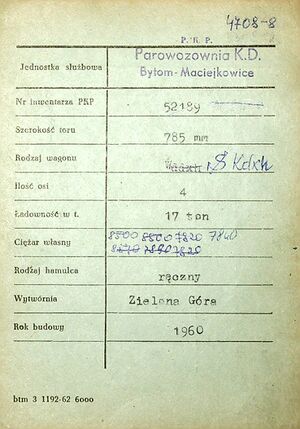 4708-8
P. K. P.
Jednostka służbowa Parowozownia K.D.
Bytom-Maciejkowice
Nr inwentarza PKP 52189
Szerokość toru 785 mm
Rodzaj wagonu Kdxh
Ilość osi 4
Ładowność w t. 17 ton
Ciężar własny 8500 8500 7820 7840
8670 7890 7820
Rodzaj hamulca ręczny
Wytwórnia Zielona Góra
Rok budowy 1960
btm 3 1192-62 6000